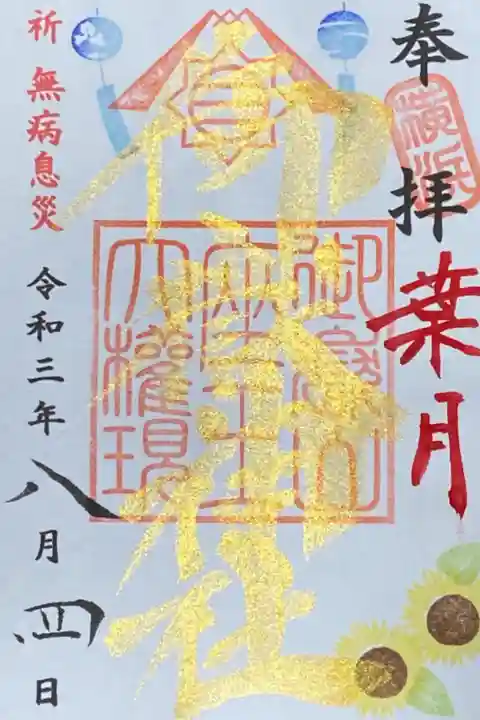 奉拝
横浜
葉月
御嶽神社
御嶽山
大権現
祈 無病息災
令和三年八月四日